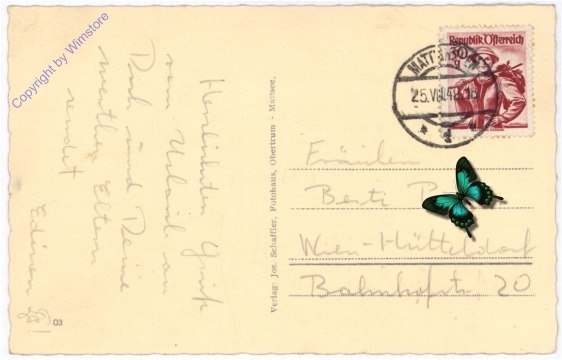 Copyright by Wimstore
Herzlichsten Gruß
vom Urlaub an
Dich und Deine
werthen Eltern
sendet
Verlag: Jos. Schaffler, Fotohaus, Obertrum - Mattsee.
Republik Österreich
25.VII.49
Fräulein
Berti
Wien-Hütteldorf
Bahnhofstr. 20
03